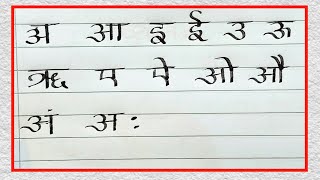 अ आ इ ई उ ऊ
ऋ ए ऐ ओ औ
अं अः